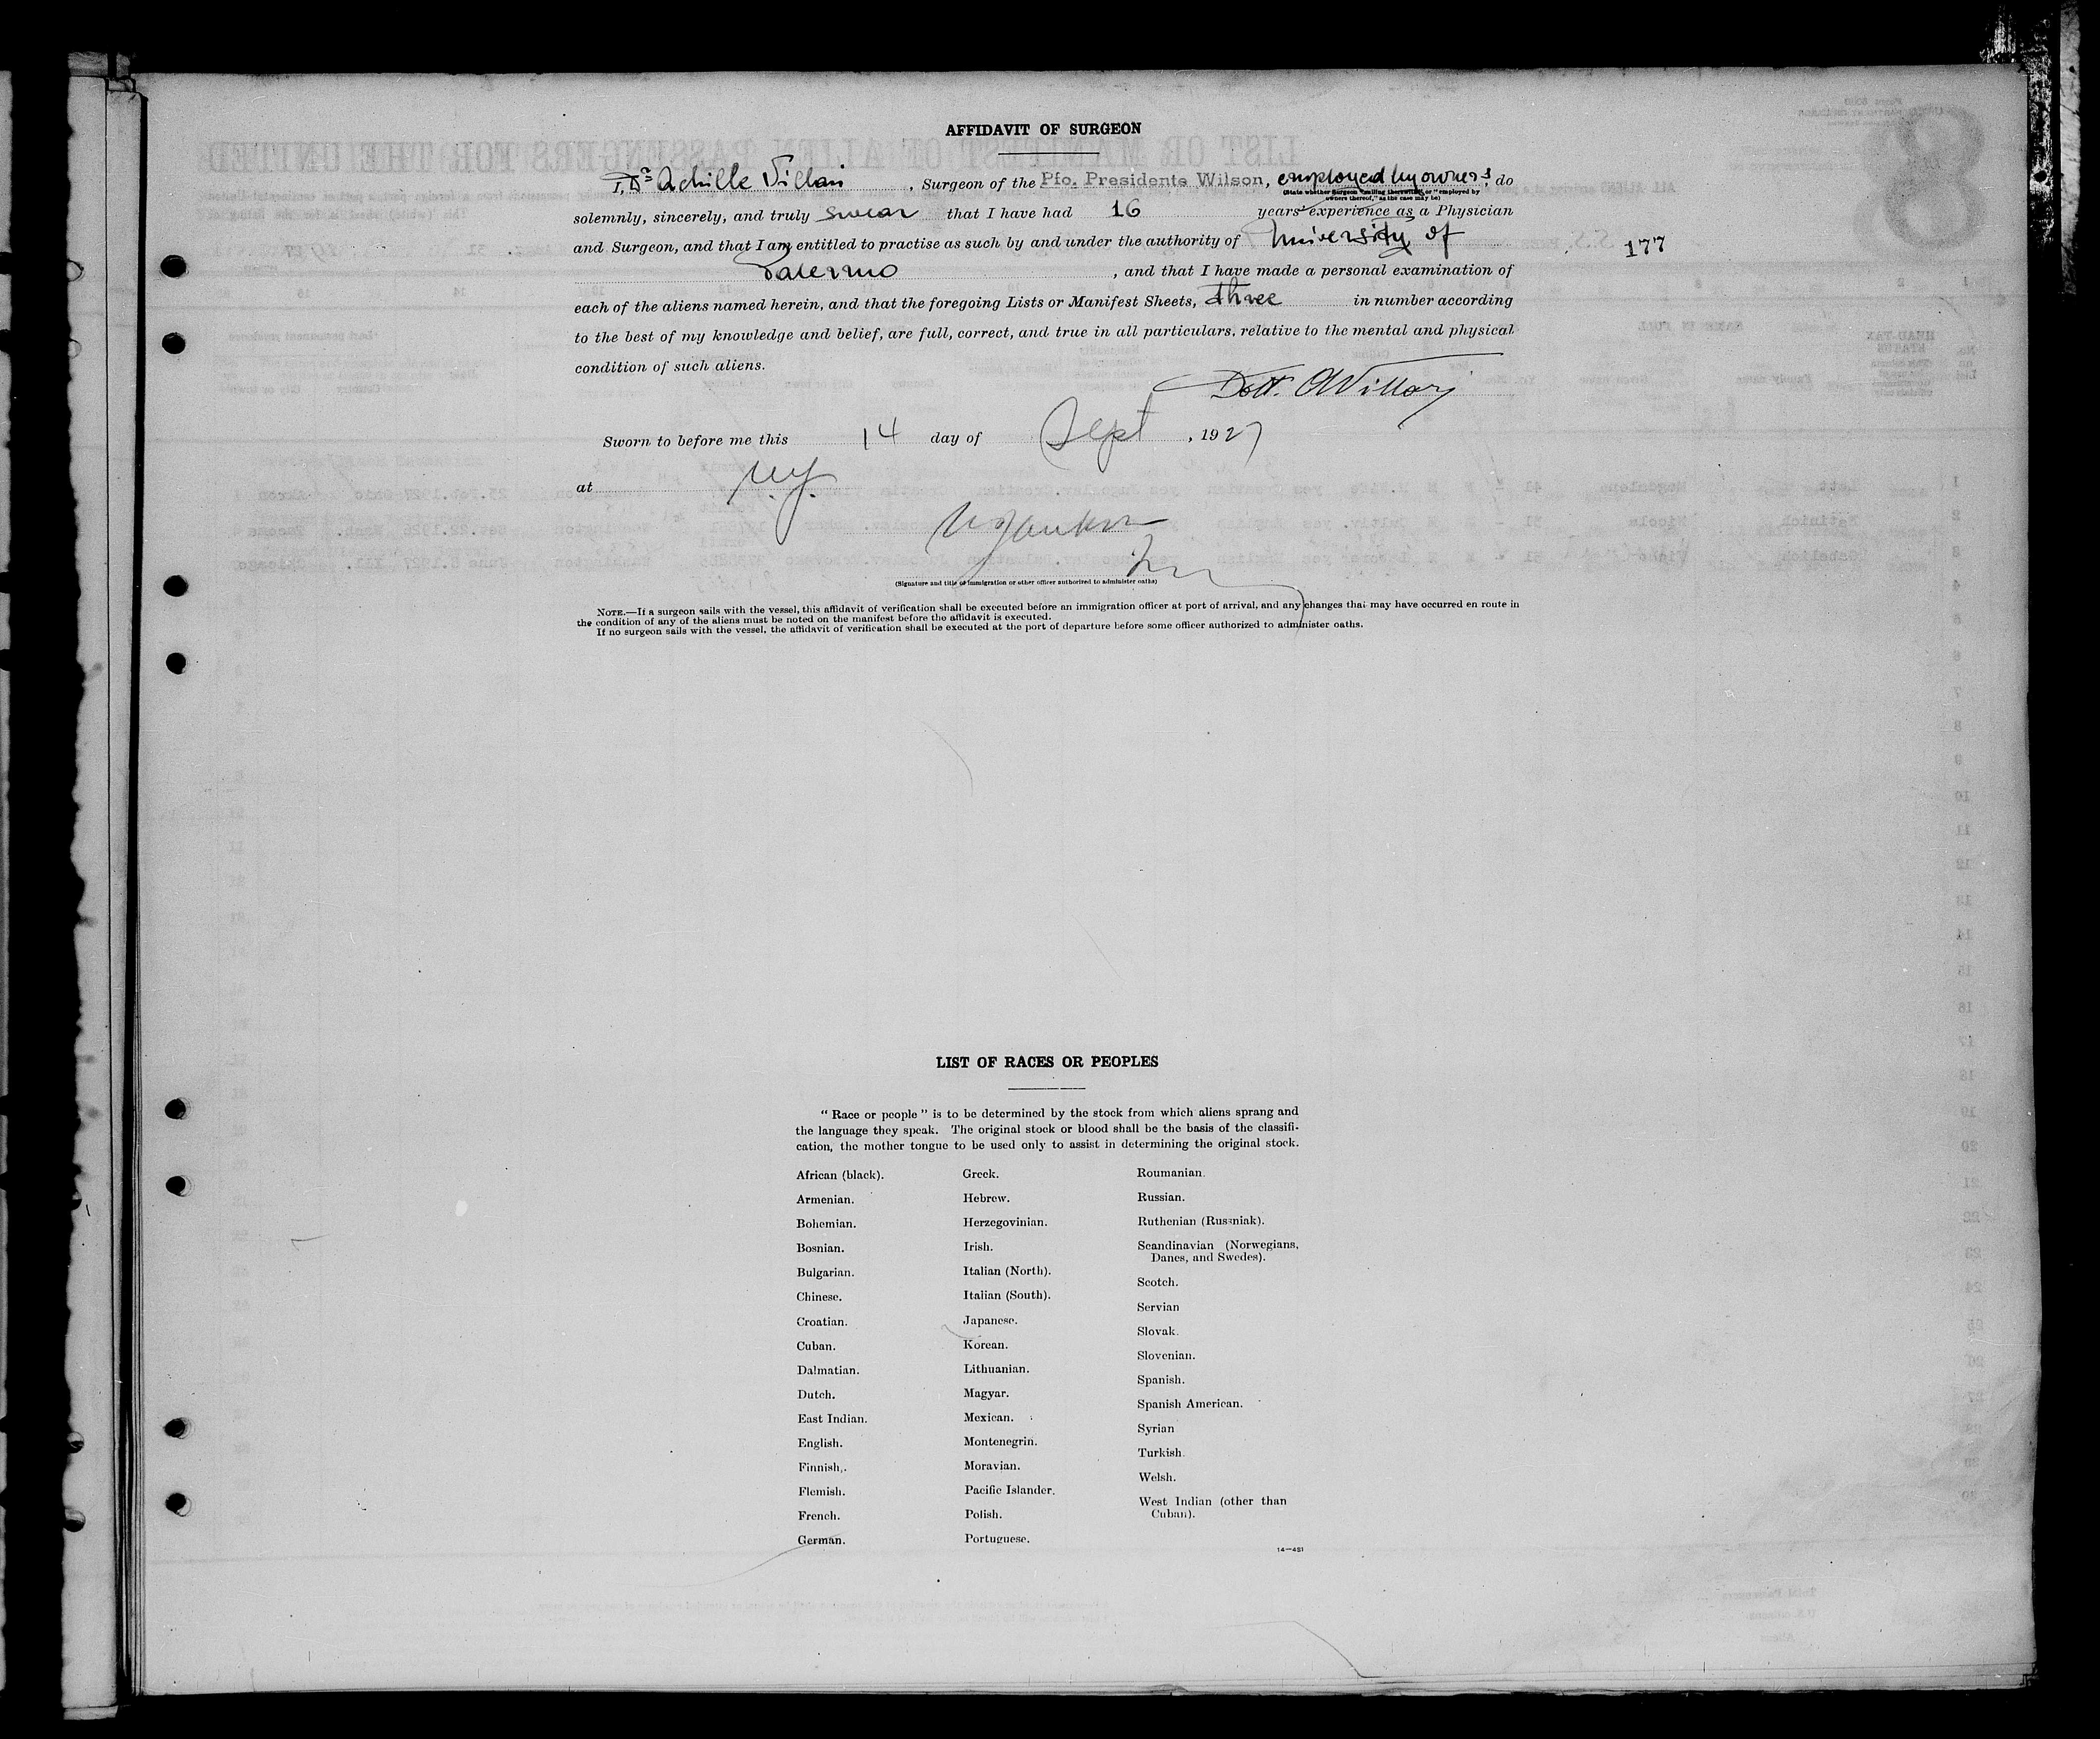 AFFIDAVIT OF SURGEON
I, Dr Achille Villari, Surgeon of the Pfo. Presidente Wilson, employed by owners, do
(State whether Surgeon "sailing therewith," or "employed by
owners thereof," as the case may be)
solemnly, sincerely, and truly swear that I have had 16 years' experience as a Physician
and Surgeon, and that I am entitled to practise as such by and under the authority of University of
177
Palermo, and that I have made a personal examination of
each of the aliens named herein, and that the foregoing Lists or Manifest Sheets, three in number according
to the best of my knowledge and belief, are full, correct, and true in all particulars, relative to the mental and physical
condition of such aliens.
Dott. A Villari
Sworn to before me this 14 day of Sept, 1927
at N.Y.
(Signature and title of immigration or other officer authorized to administer oaths)
NOTE.—If a surgeon sails with the vessel, this affidavit of verification shall be executed before an immigration officer at port of arrival, and any changes that may have occurred en route in
the condition of any of the aliens must be noted on the manifest before the affidavit is executed.
If no surgeon sails with the vessel, the affidavit of verification shall be executed at the port of departure before some officer authorized to administer oaths.
LIST OF RACES OR PEOPLES
"Race or people" is to be determined by the stock from which aliens sprang and
the language they speak. The original stock or blood shall be the basis of the classifi-
cation, the mother tongue to be used only to assist in determining the original stock.
African (black).
Armenian.
Bohemian.
Bosnian.
Bulgarian.
Chinese.
Croatian.
Cuban.
Dalmatian.
Dutch.
East Indian.
English.
Finnish.
Flemish.
French.
German.
Greek.
Hebrew.
Herzegovinian.
Irish.
Italian (North).
Italian (South).
Japanese.
Korean.
Lithuanian.
Magyar.
Mexican.
Montenegrin.
Moravian.
Pacific Islander.
Polish.
Portuguese.
Roumanian.
Russian.
Ruthenian (Russniak).
Scandinavian (Norwegians,
Danes, and Swedes).
Scotch.
Servian
Slovak.
Slovenian.
Spanish.
Spanish American.
Syrian
Turkish.
Welsh.
West Indian (other than
Cuban).
14—481